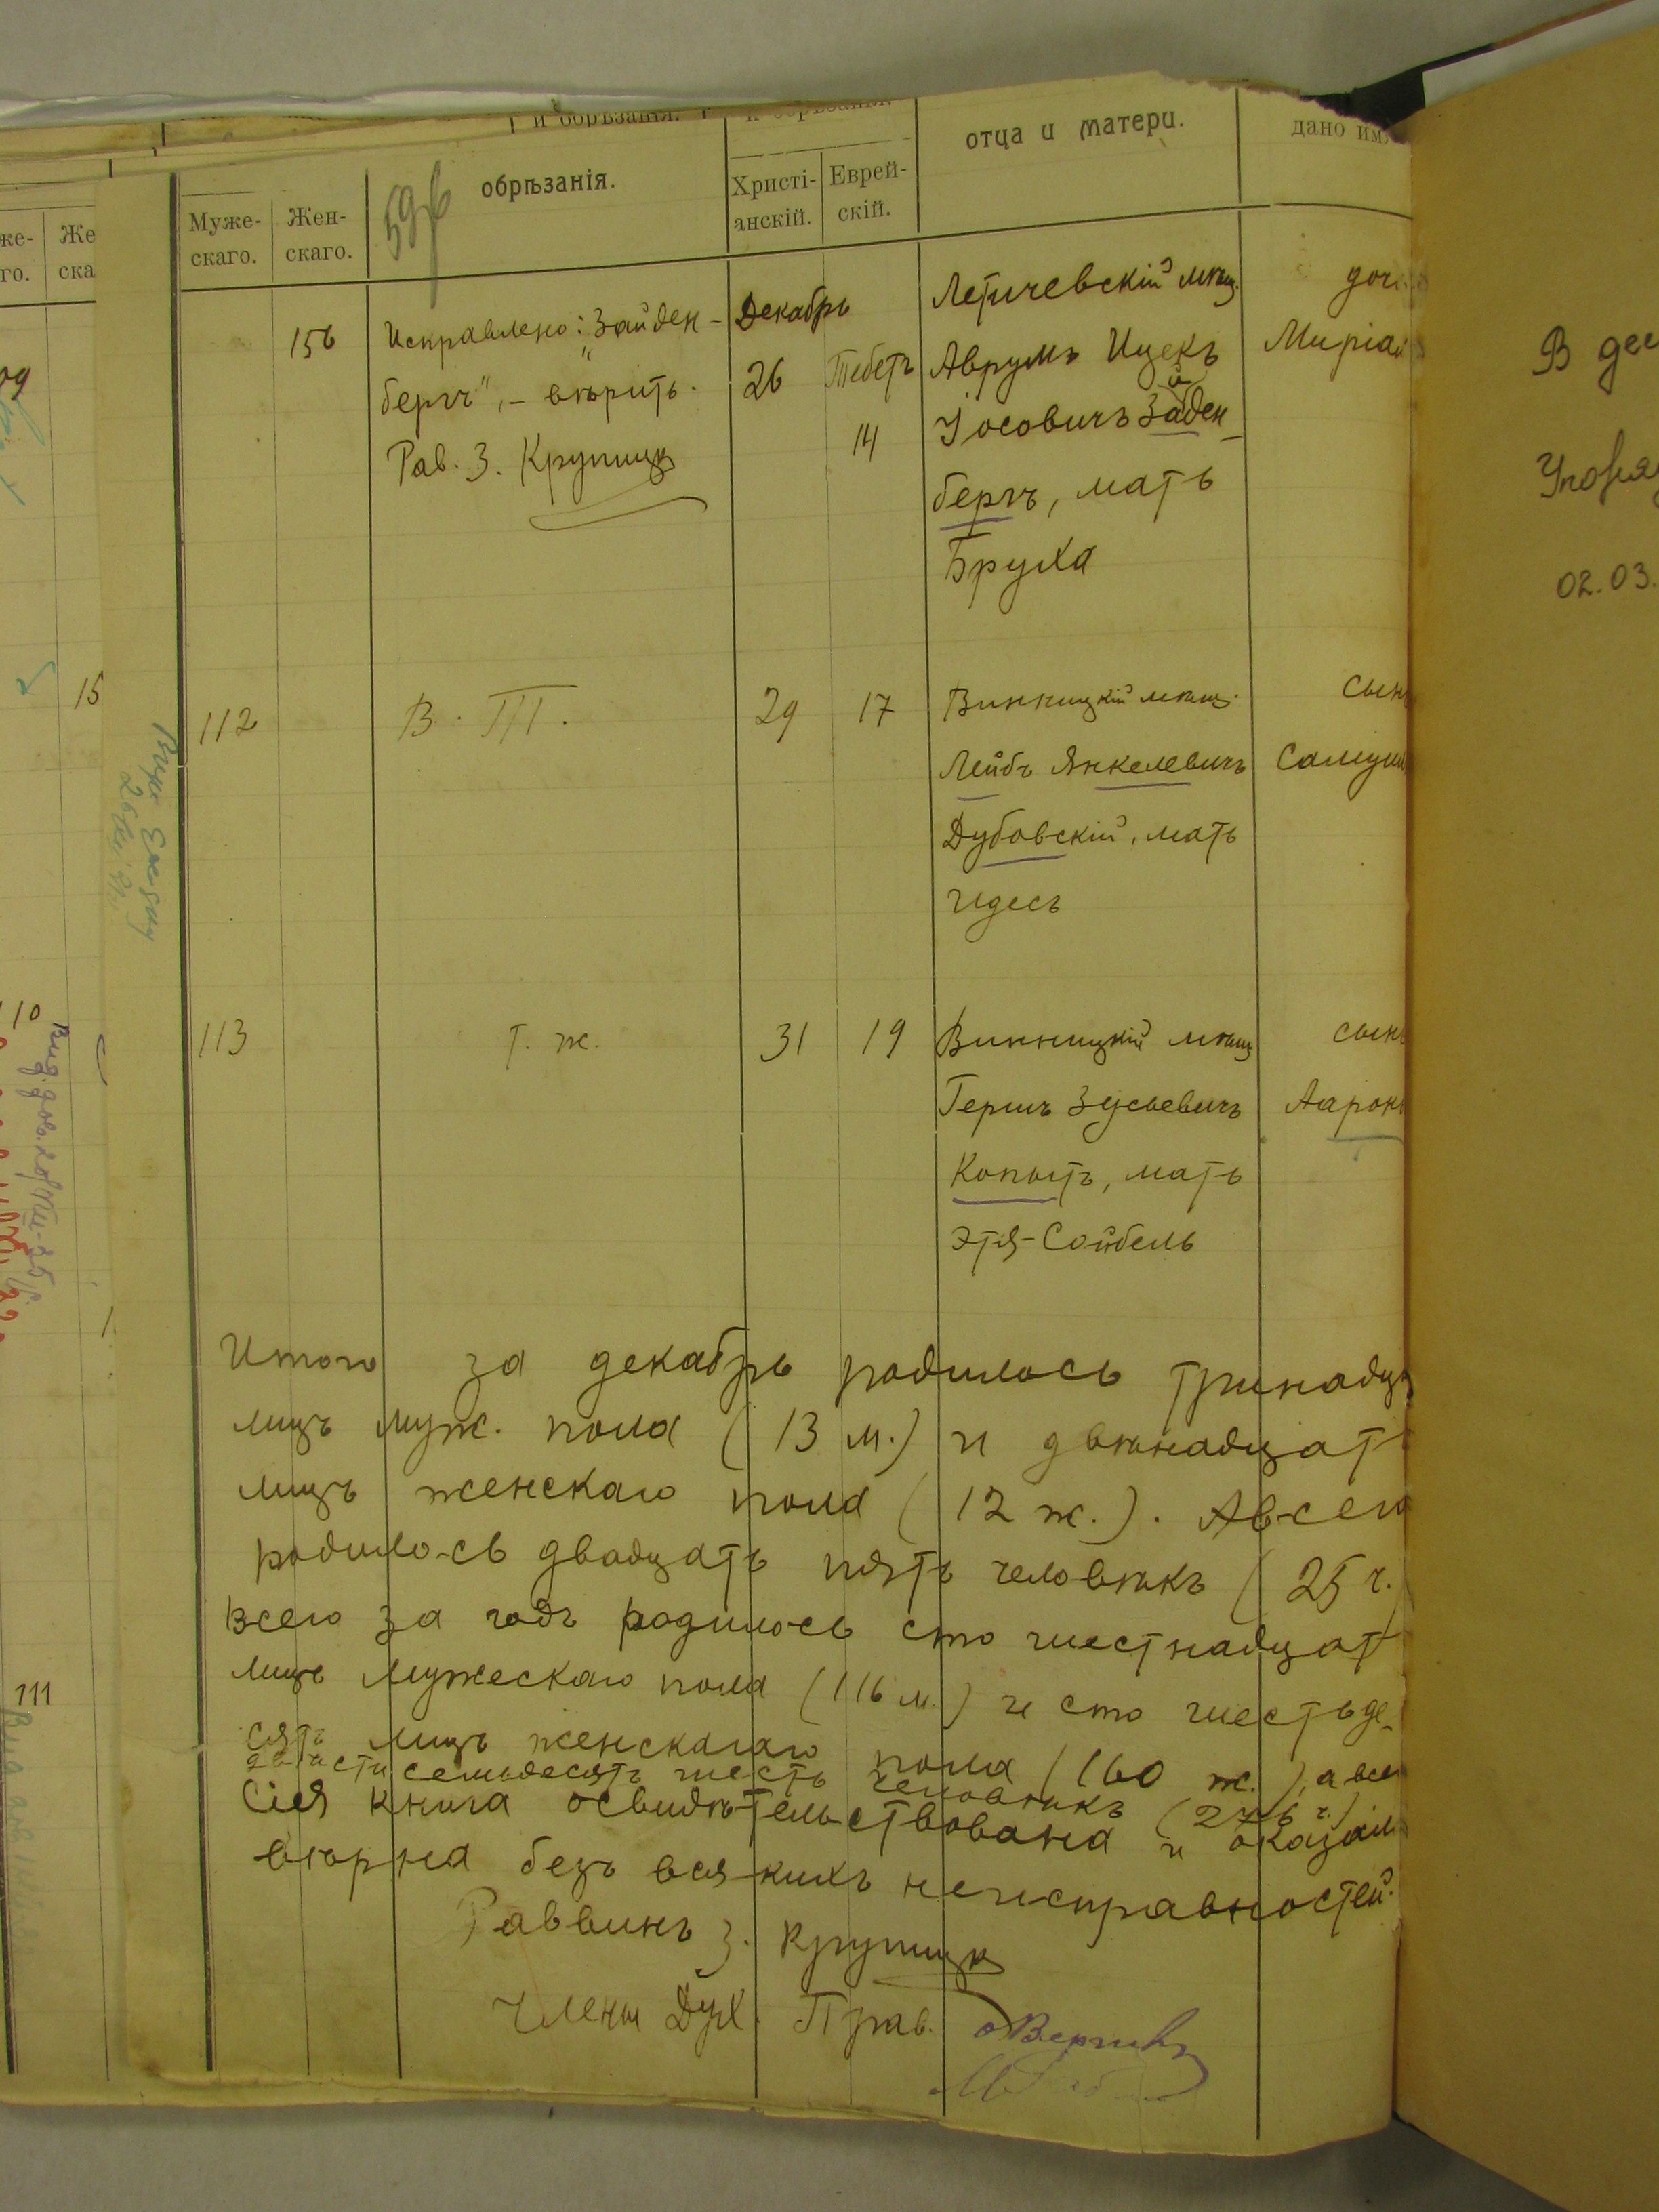 и обрѣзанія.
отца и матери.
дано им
Муже-
скаго.
Жен-
скаго.
обрѣзанія.
Христі-
анскій.
Еврей-
скій.
156
Исправлено: „Зайден-
бергъ", – вѣрить.
Рав. З. Крупицк
Декабрь
26
Тебетъ
14
Летичевскій мѣщ.
Аврумъ Ицекъ
Іосовичъ Зайден-
бергъ, мать
Бруха
доч
Миріам
112
В. Т.
29
17
Винницкій мѣщ.
Лейбъ Янкелевичъ
Дубовскій, мать
Идесъ
сынъ
Самуил
113
Т. ж.
31
19
Винницкій мѣщ
Гершъ Зусьевичъ
Копытъ, мать
Этя-Сойбель
сынъ
Ааронъ
Итого за декабрь родилось тринадц
лицъ муж. пола (13 м.) и двѣнадцат
лицъ женскаго пола (12 ж.). А всего
родилось двадцать пять человѣкъ (25 ч.)
всего за годъ родилось сто шестнадцат
лицъ мужескаго пола (116 м.) и сто шестьде-
сятъ лицъ женскагаго пола (160 ж.), а всего
двѣсти семьдесятъ шесть человѣкъ (276 ч.)
Сія книга освидѣтельствована и оказал
вѣрна безъ всякихъ неисправностей.
Раввинъ З. Крупицк
Члены Дух. Прав.
же-
го.
Же
ска
15
110
111
В дес
02.03.